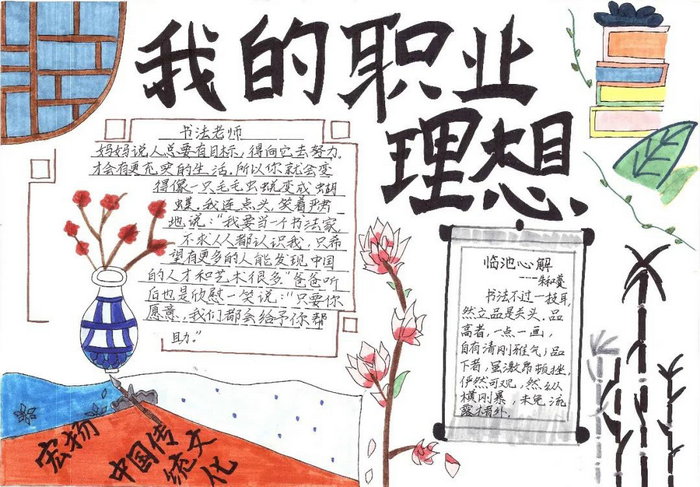 我的职业
理想
书法老师
妈妈说人总要有目标,得向它去努力,
才会有更充实的生活,所以你就会变
得像一只毛毛虫蜕变成蝴
蝶,我连点头,笑着
地说:“我要当一个书法家,
不求人人都认识我,只希
望有更多的人能发现中国
的人才和艺术很多”爸爸听
后也是欣慰一笑说:“只要你
愿意,我们都会给予你帮
助。”
临池心解
——朱和羹
书法不过一技耳,
然立品是关头,品
高者,一点一画,
自有清刚雅气;品
下者,虽激昂顿挫,
俨然可观,然纵
横刚暴,未免流
露楮外。
宏扬
中国传
统文化